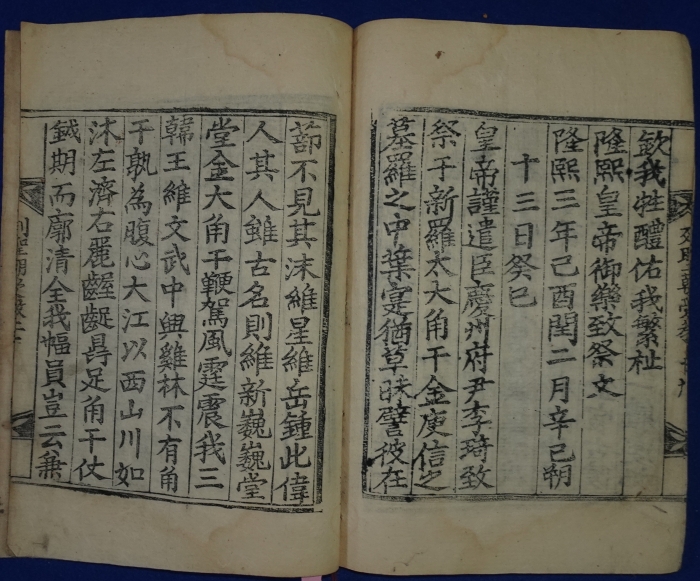 歆我牲醴佑我繁祉
隆熙皇帝御藥致祭文
隆熙三年己酉閏二月辛巳朔
十三日癸巳
皇帝謹遣臣慶州府尹李琦致
祭于新羅太大角干金庾信之
墓羅之中葉寔猶草昧譬彼在
蔀不見其沫維星維岳鍾此偉
人其人雖古名則維新巍巍堂
堂金大角干鞭駕風霆震我三
韓王維文武中興雞林不有角
干孰為腹心大江以西山川如
沐左濟右麗齷齪㝵足角干仗
鉞期而廓清全我幅員豈云兼